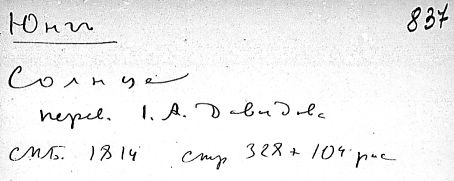 Юнгъ 837
Солнце
перев. І. А. Давидова
СПБ. 1914 стр 328 + 104 рис